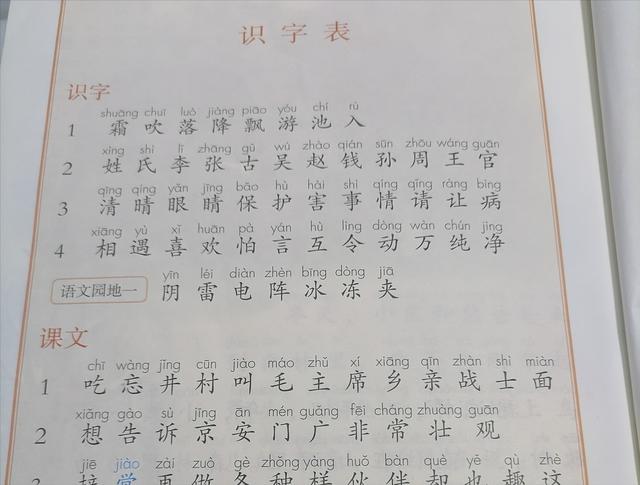 识字表
识字
shuāng chuī luò jiàng piāo yóu chí rù
1 霜 吹 落 降 飘 游 池 入
xìng shì lǐ zhāng gǔ wú zhào qián sūn zhōu wáng guān
2 姓 氏 李 张 古 吴 赵 钱 孙 周 王 官
qīng qíng yǎn jīng bǎo hù hài shì qíng qǐng ràng bìng
3 清 晴 眼 睛 保 护 害 事 情 请 让 病
xiāng yù xǐ huān pà yán hù lìng dòng wàn chún jìng
4 相 遇 喜 欢 怕 言 互 令 动 万 纯 净
yīn léi diàn zhèn bīng dòng jiā
语文园地一 阴 雷 电 阵 冰 冻 夹
课文
chī wàng jǐng cūn jiào máo zhǔ xí xiāng qīn zhàn shì miàn
1 吃 忘 井 村 叫 毛 主 席 乡 亲 战 士 面
xiǎng gào sù jīng ān mén guǎng fēi cháng zhuàng guān
2 想 告 诉 京 安 门 广 非 常 壮 观
jiē jiào zài zuò gè zhǒng yàng huǒ bàn què yě qù zhè
3 接 觉 再 做 各 种 样 伙 伴 却 也 趣 这